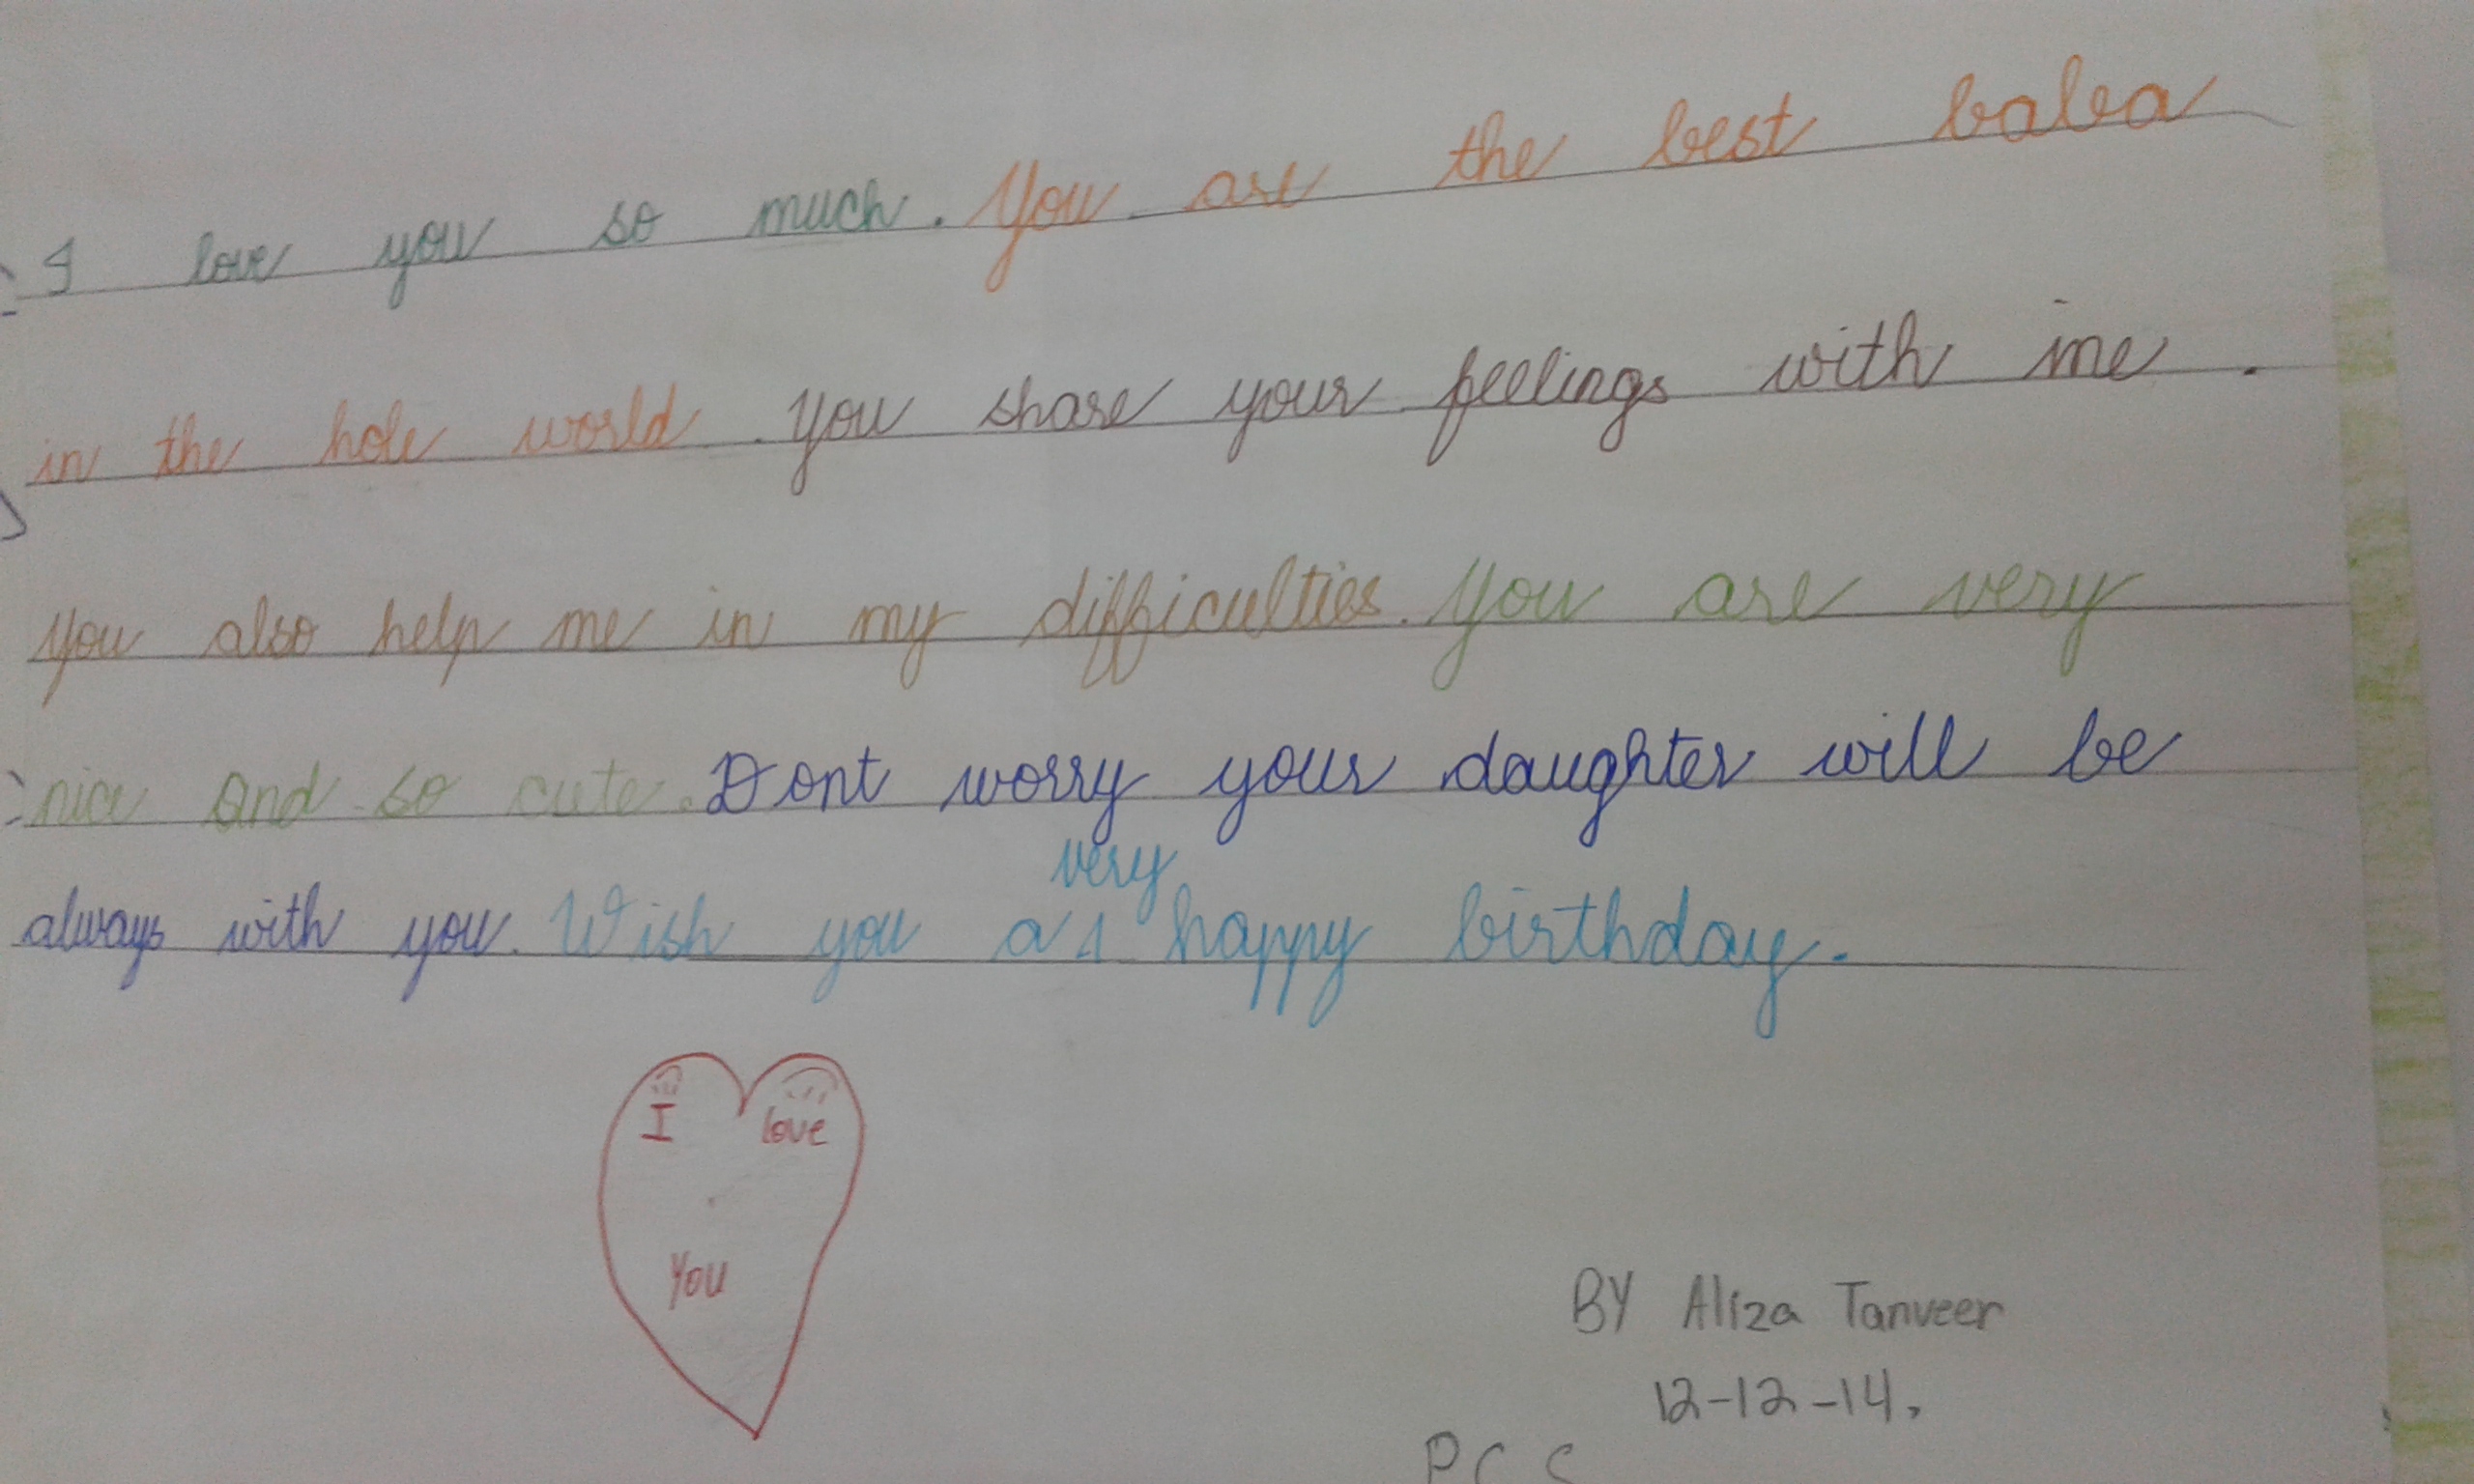 I love you so much. You are the best baba
in the hole world. You share your feelings with me.
you also help me in my difficulties. You are very
nice and so cute. Dont worry your daughter will be
always with you. Wish you a very happy birthday.
I love
You
BY Aliza Tanveer
12-12-14.